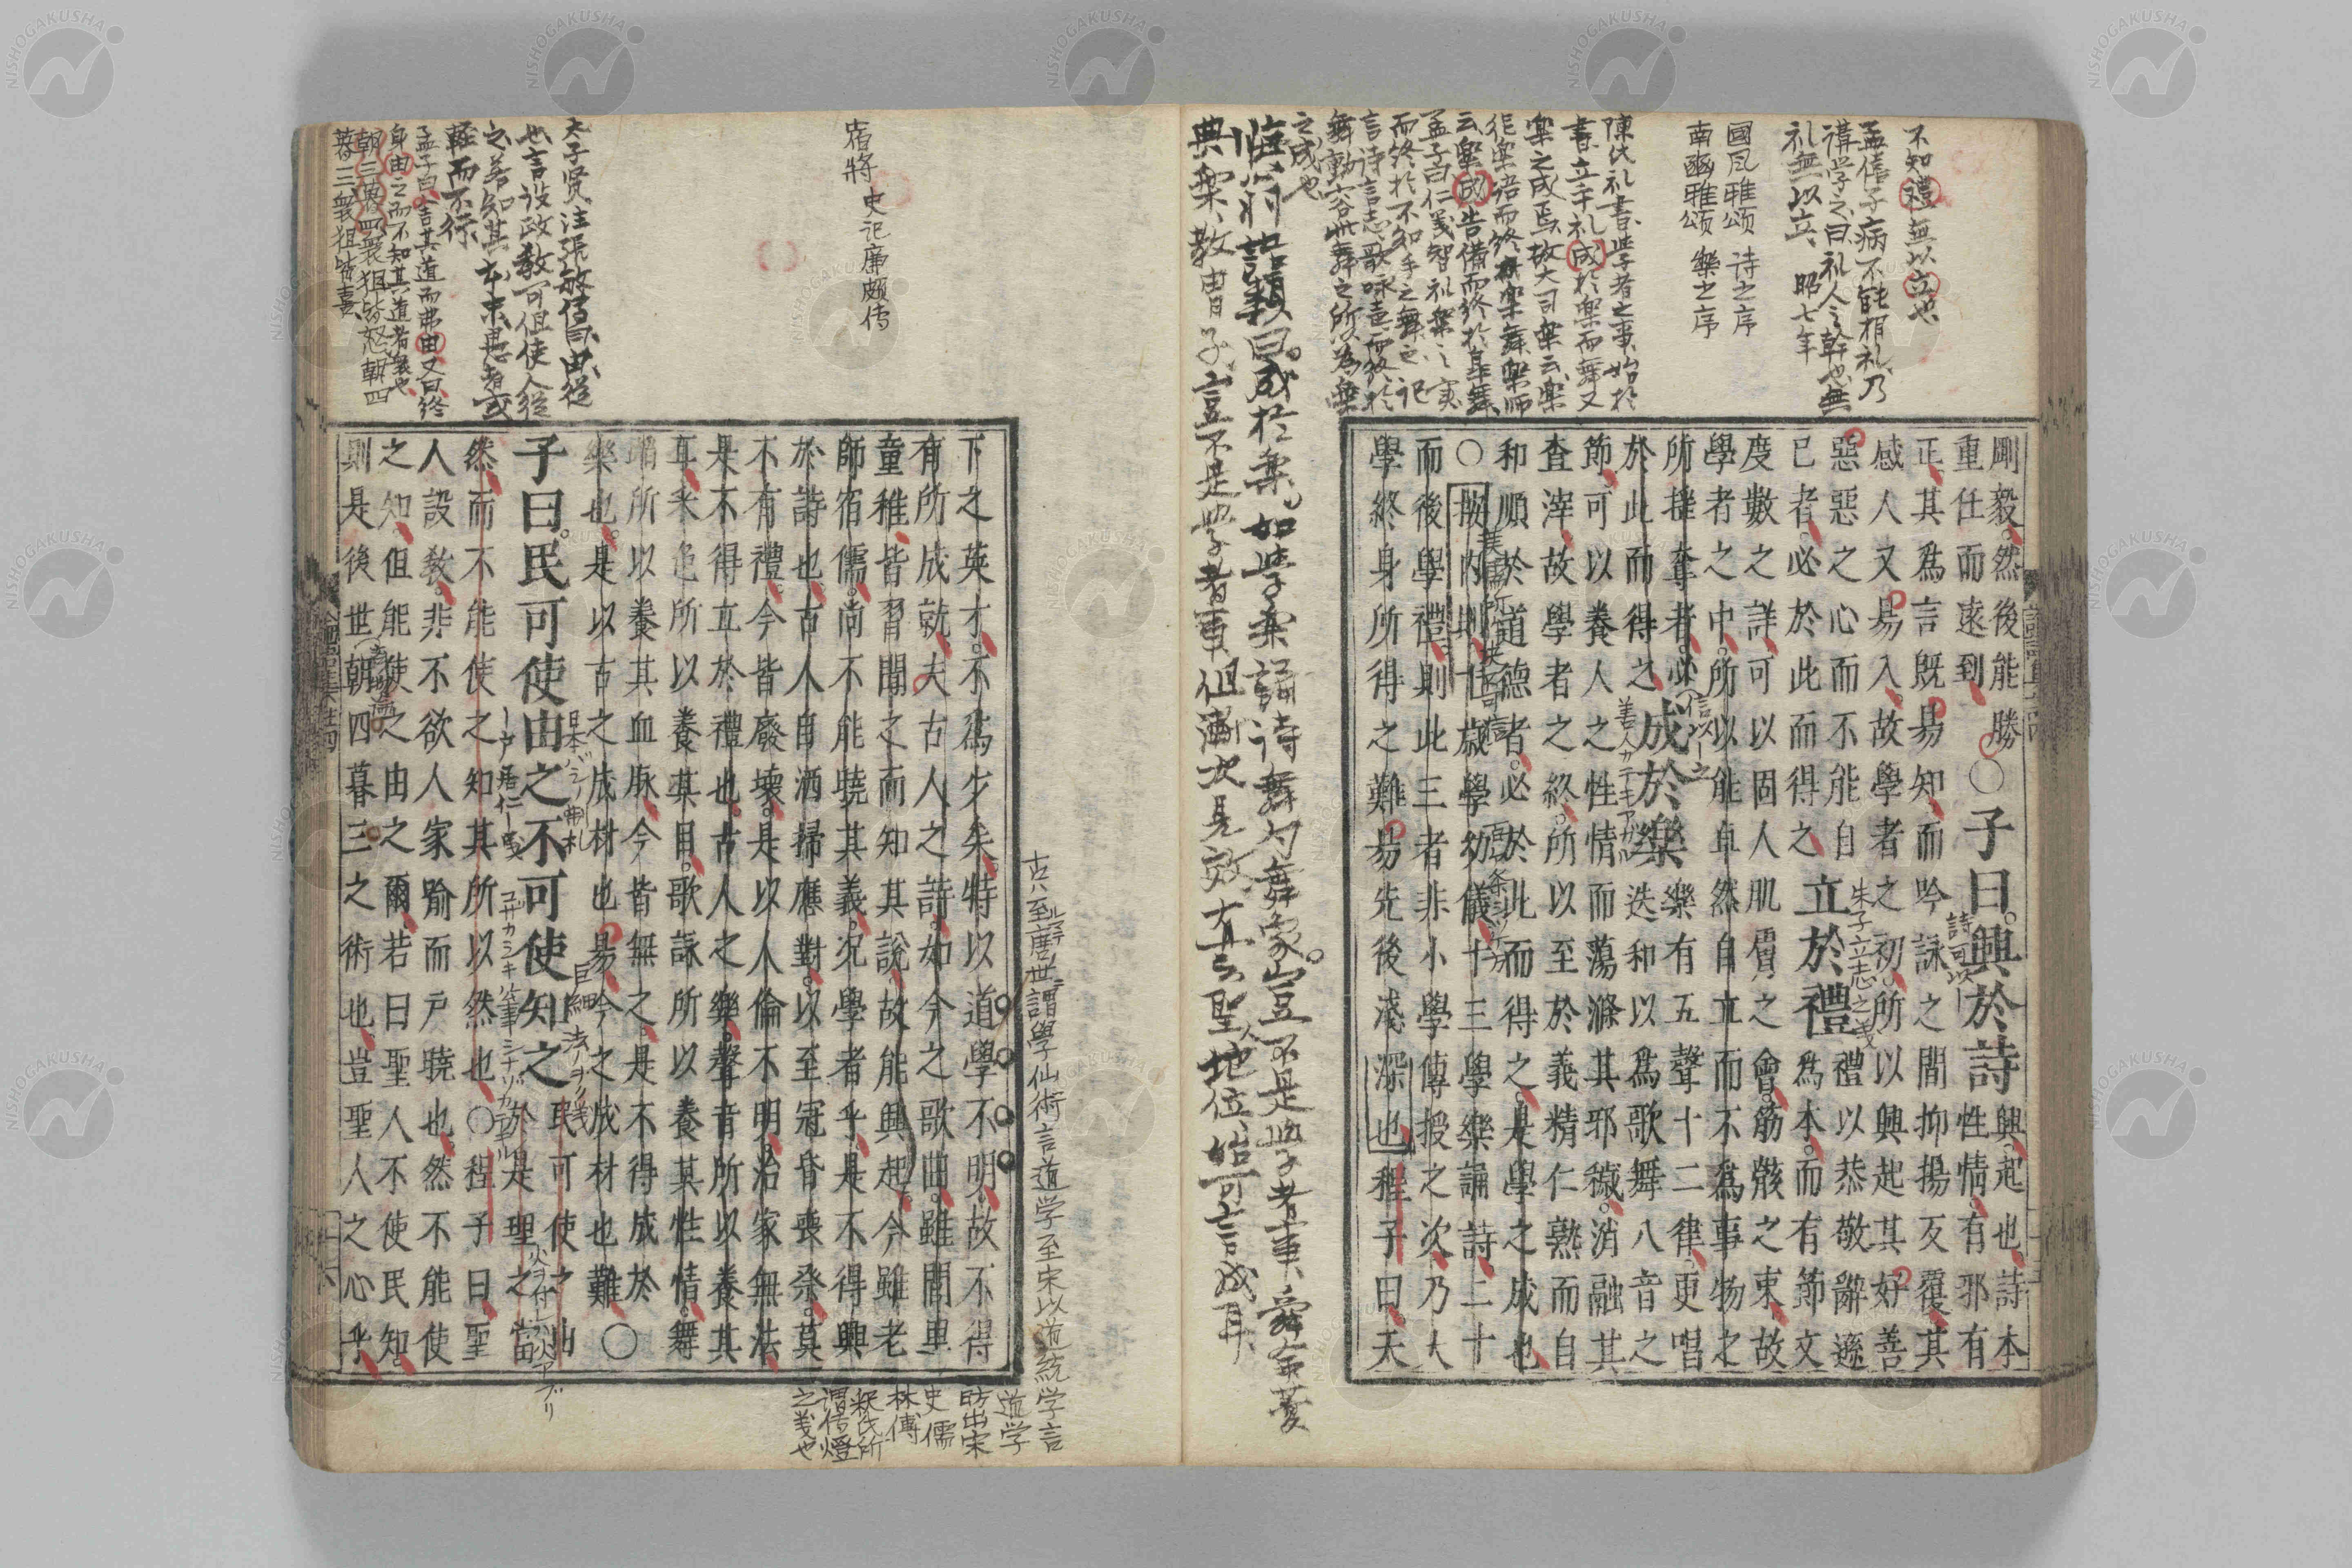 不知禮無以立也
孟僖子病不能相礼乃
講学之曰礼人之幹也無
礼無以立 昭七年
國风雅颂 诗之序
南豳雅颂 樂之序
陳氏礼書学者之事始於
書立于礼成於楽而舞又
楽之成焉故大司楽云楽
云楽成告備而終於皐舞
孟子曰仁義智礼楽之実
而終於不知手之舞之 记
言诗言志歌咏声而後於
舞動容此舞之所以為楽
之成也
剛毅然後能勝
重任而遠到
○子曰興於詩
興起也詩本
性情有邪有
正其爲言既易知而吟詠之間抑揚反覆其
感人又易入故學者之初所以興起其好善
惡惡之心而不能自
已者必於此而得之
立於禮
禮以恭敬辭遜
爲本而有節文
度數之詳可以固人肌膚之會筋骸之束故
學者之中所以能卓然自立而不爲事物之
所搖奪者必
於此而得之
成於樂
樂有五聲十二律更唱
迭和以爲歌舞八音之
節可以養人之性情而蕩滌其邪穢消融其
査滓故學者之終所以至於義精仁熟而自
和順於道德者必於此而得之是學之成也
○按內則十歲學幼儀十三學樂誦詩二十
而後學禮則此三者非小學傳授之次乃大
學終身所得之難易先後淺深也程子曰天
朱子立志之義
詩可以
臨川语類曰成於楽如学楽誦诗舞勺舞象豈不是学者事舜命夔
典楽教胄子豈不是学者事但漸次見效
聖人地位始可言成耳
下之英才不爲少矣特以道學不明故不得
有所成就夫古人之詩如今之歌曲雖閭里
童稚皆習聞之而知其說故能興起今雖老
師宿儒尚不能曉其義況學者乎是不得興
於詩也古人自洒掃應對以至冠昏喪祭莫
不有禮今皆廢壞是以人倫不明治家無法
是不得立於禮也古人之樂聲音所以養其
耳采色所以養其目歌詠所以養其性情舞
蹈所以養其血脉今皆無之是不得成於
樂也是以古之成材也易今之成材也難○
子曰民可使由之不可使知之
民可使之由
於是理之當
然而不能使之知其所以然也○程子曰聖
人設教非不欲人家喻而戶曉也然不能使
之知但能使之由之爾若曰聖人不使民知
則是後世朝四暮三之術也豈聖人之心乎
宿将 史记廉颇传
太子贤注張敏传曰由從
也言设政教可但使人從
之若知其本末愚者或
軽而不行
孟子曰
其道而弗由又曰終
身由之而不知其道者衆也
朝三暮四衆狙皆怒朝四
暮三衆狙皆喜
古ハ至唐世謂學仙術言道学至宋以道統
学言
道学
昉出宋
史儒
林傳
釈氏所
謂传燈
之義也